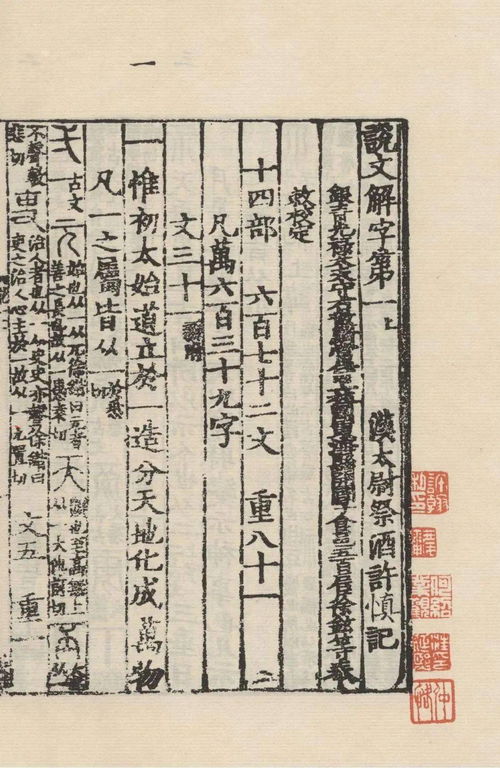 一
說文解字弟一上 漢太尉祭酒許慎記
銀青光祿大夫守右散騎常侍上柱國東海縣開國子食邑五百戶臣徐鉉等奉
敕校定
十四部 六百七十二文 重八十一
凡萬六百三十九字
文三十一 新附
一 惟初太始道立於一造分天地化成萬物
凡一之屬皆从一 於悉切
弌 古文一 元 始也从一从兀徐鍇曰元者善之長也故从一愚袁切 天 顛也至高無上从一大他前切 丕 大也从一
不聲敷悲切 吏 治人者也从一从史史亦聲徐鍇曰吏之治人心主於一故从一力置切 文五 重一